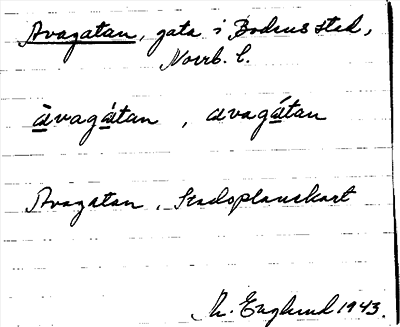 Avagatan, gata i Bodens stad,
Norrb. l.
àvagátan, avagátan
Avagatan, Stadsplanekart
M. Englund 1943.